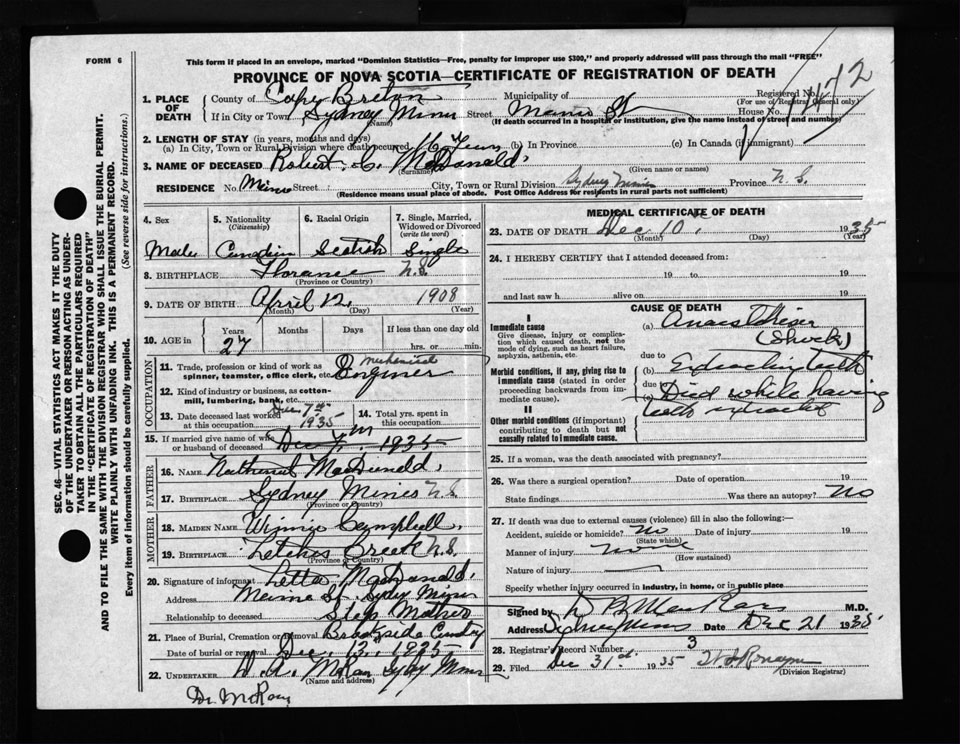 FORM 6
This form if placed in an envelope, marked "Dominion Statistics—Free, penalty for improper use $300," and properly addressed will pass through the mail "FREE"
PROVINCE OF NOVA SCOTIA—CERTIFICATE OF REGISTRATION OF DEATH
1. PLACE OF DEATH
County of Cape Breton Municipality of Registered No.
(For use of Registrar General only)
If in City or Town Sydney Mines Street Main St House No.
(Name) (If death occurred in a hospital or institution, give the name instead of street and number)
2. LENGTH OF STAY (in years, months and days)
(a) In City, Town or Rural Division where death occurred (b) In Province (c) In Canada (if immigrant)
3. NAME OF DECEASED Robert C. McDonald
(Surname) (Given name or names)
RESIDENCE No. Street City, Town or Rural Division Sydney Mines Province N.S.
(Residence means usual place of abode. Post Office Address for residents in rural parts not sufficient)
4. Sex
Male
5. Nationality
(Citizenship)
Canadian
6. Racial Origin
Scotish
7. Single, Married, Widowed or Divorced
(write the word)
Single
8. BIRTHPLACE Florance N.S.
(Province or Country)
9. DATE OF BIRTH April 12, 1908
(Month) (Day) (Year)
10. AGE in Years Months Days If less than one day old
27 hrs. or min.
OCCUPATION
11. Trade, profession or kind of work as spinner, teamster, office clerk, etc. Mechanical Engineer
12. Kind of industry or business, as cotton-mill, lumbering, bank, etc.
13. Date deceased last worked at this occupation Dec 7th 1935
14. Total yrs. spent in this occupation
15. If married give name of wife or husband of deceased Dec 1935
FATHER
16. NAME Nathanel MacDonald
17. BIRTHPLACE Sydney Mines N.S.
(Province or Country)
MOTHER
18. MAIDEN NAME Winnie Campbell
19. BIRTHPLACE Letches Creek N.S.
(Province or Country)
20. Signature of informant Letta MacDonald
Address St. Sydy Mines
Relationship to deceased Step Mother
21. Place of Burial, Cremation or removal Brookside
Date of burial or removal Dec. 13, 1935
22. UNDERTAKER
(Name and address)
MEDICAL CERTIFICATE OF DEATH
23. DATE OF DEATH Dec 10, 1935
(Month) (Day) (Year)
24. I HEREBY CERTIFY that I attended deceased from:
19 to 19
and last saw h alive on 19
CAUSE OF DEATH
I
Immediate cause
Give disease, injury or complication which caused death, not the mode of dying, such as heart failure, asphyxia, asthenia, etc.
(a) (Shock)
due to
Morbid conditions, if any, giving rise to immediate cause (stated in order proceeding backwards from immediate cause).
(b) Extracting teeth
due to
(c) Died while having teeth extracted
II
Other morbid conditions (if important) contributing to death but not causally related to immediate cause.
25. If a woman, was the death associated with pregnancy?
26. Was there a surgical operation? Date of operation 19
State findings Was there an autopsy? No
27. If death was due to external causes (violence) fill in also the following:—
Accident, suicide or homicide? no Date of injury 19
(State which)
Manner of injury none
(How sustained)
Nature of injury
Specify whether injury occurred in industry, in home, or in public place
Signed by M.D.
Address Sydney Mines Date Dec 21 1935
28. Registrar's Record Number 3
29. Filed Dec 31st 1935
(Division Registrar)
SEC. 46—VITAL STATISTICS ACT MAKES IT THE DUTY
OF THE UNDERTAKER OR PERSON ACTING AS UNDERTAKER TO OBTAIN ALL THE PARTICULARS REQUIRED
IN THE "CERTIFICATE OF REGISTRATION OF DEATH"
AND TO FILE THE SAME WITH THE DIVISION REGISTRAR WHO SHALL ISSUE THE BURIAL PERMIT.
WRITE PLAINLY WITH UNFADING INK. THIS IS A PERMANENT RECORD.
Every item of information should be carefully supplied. (See reverse side for instructions.)